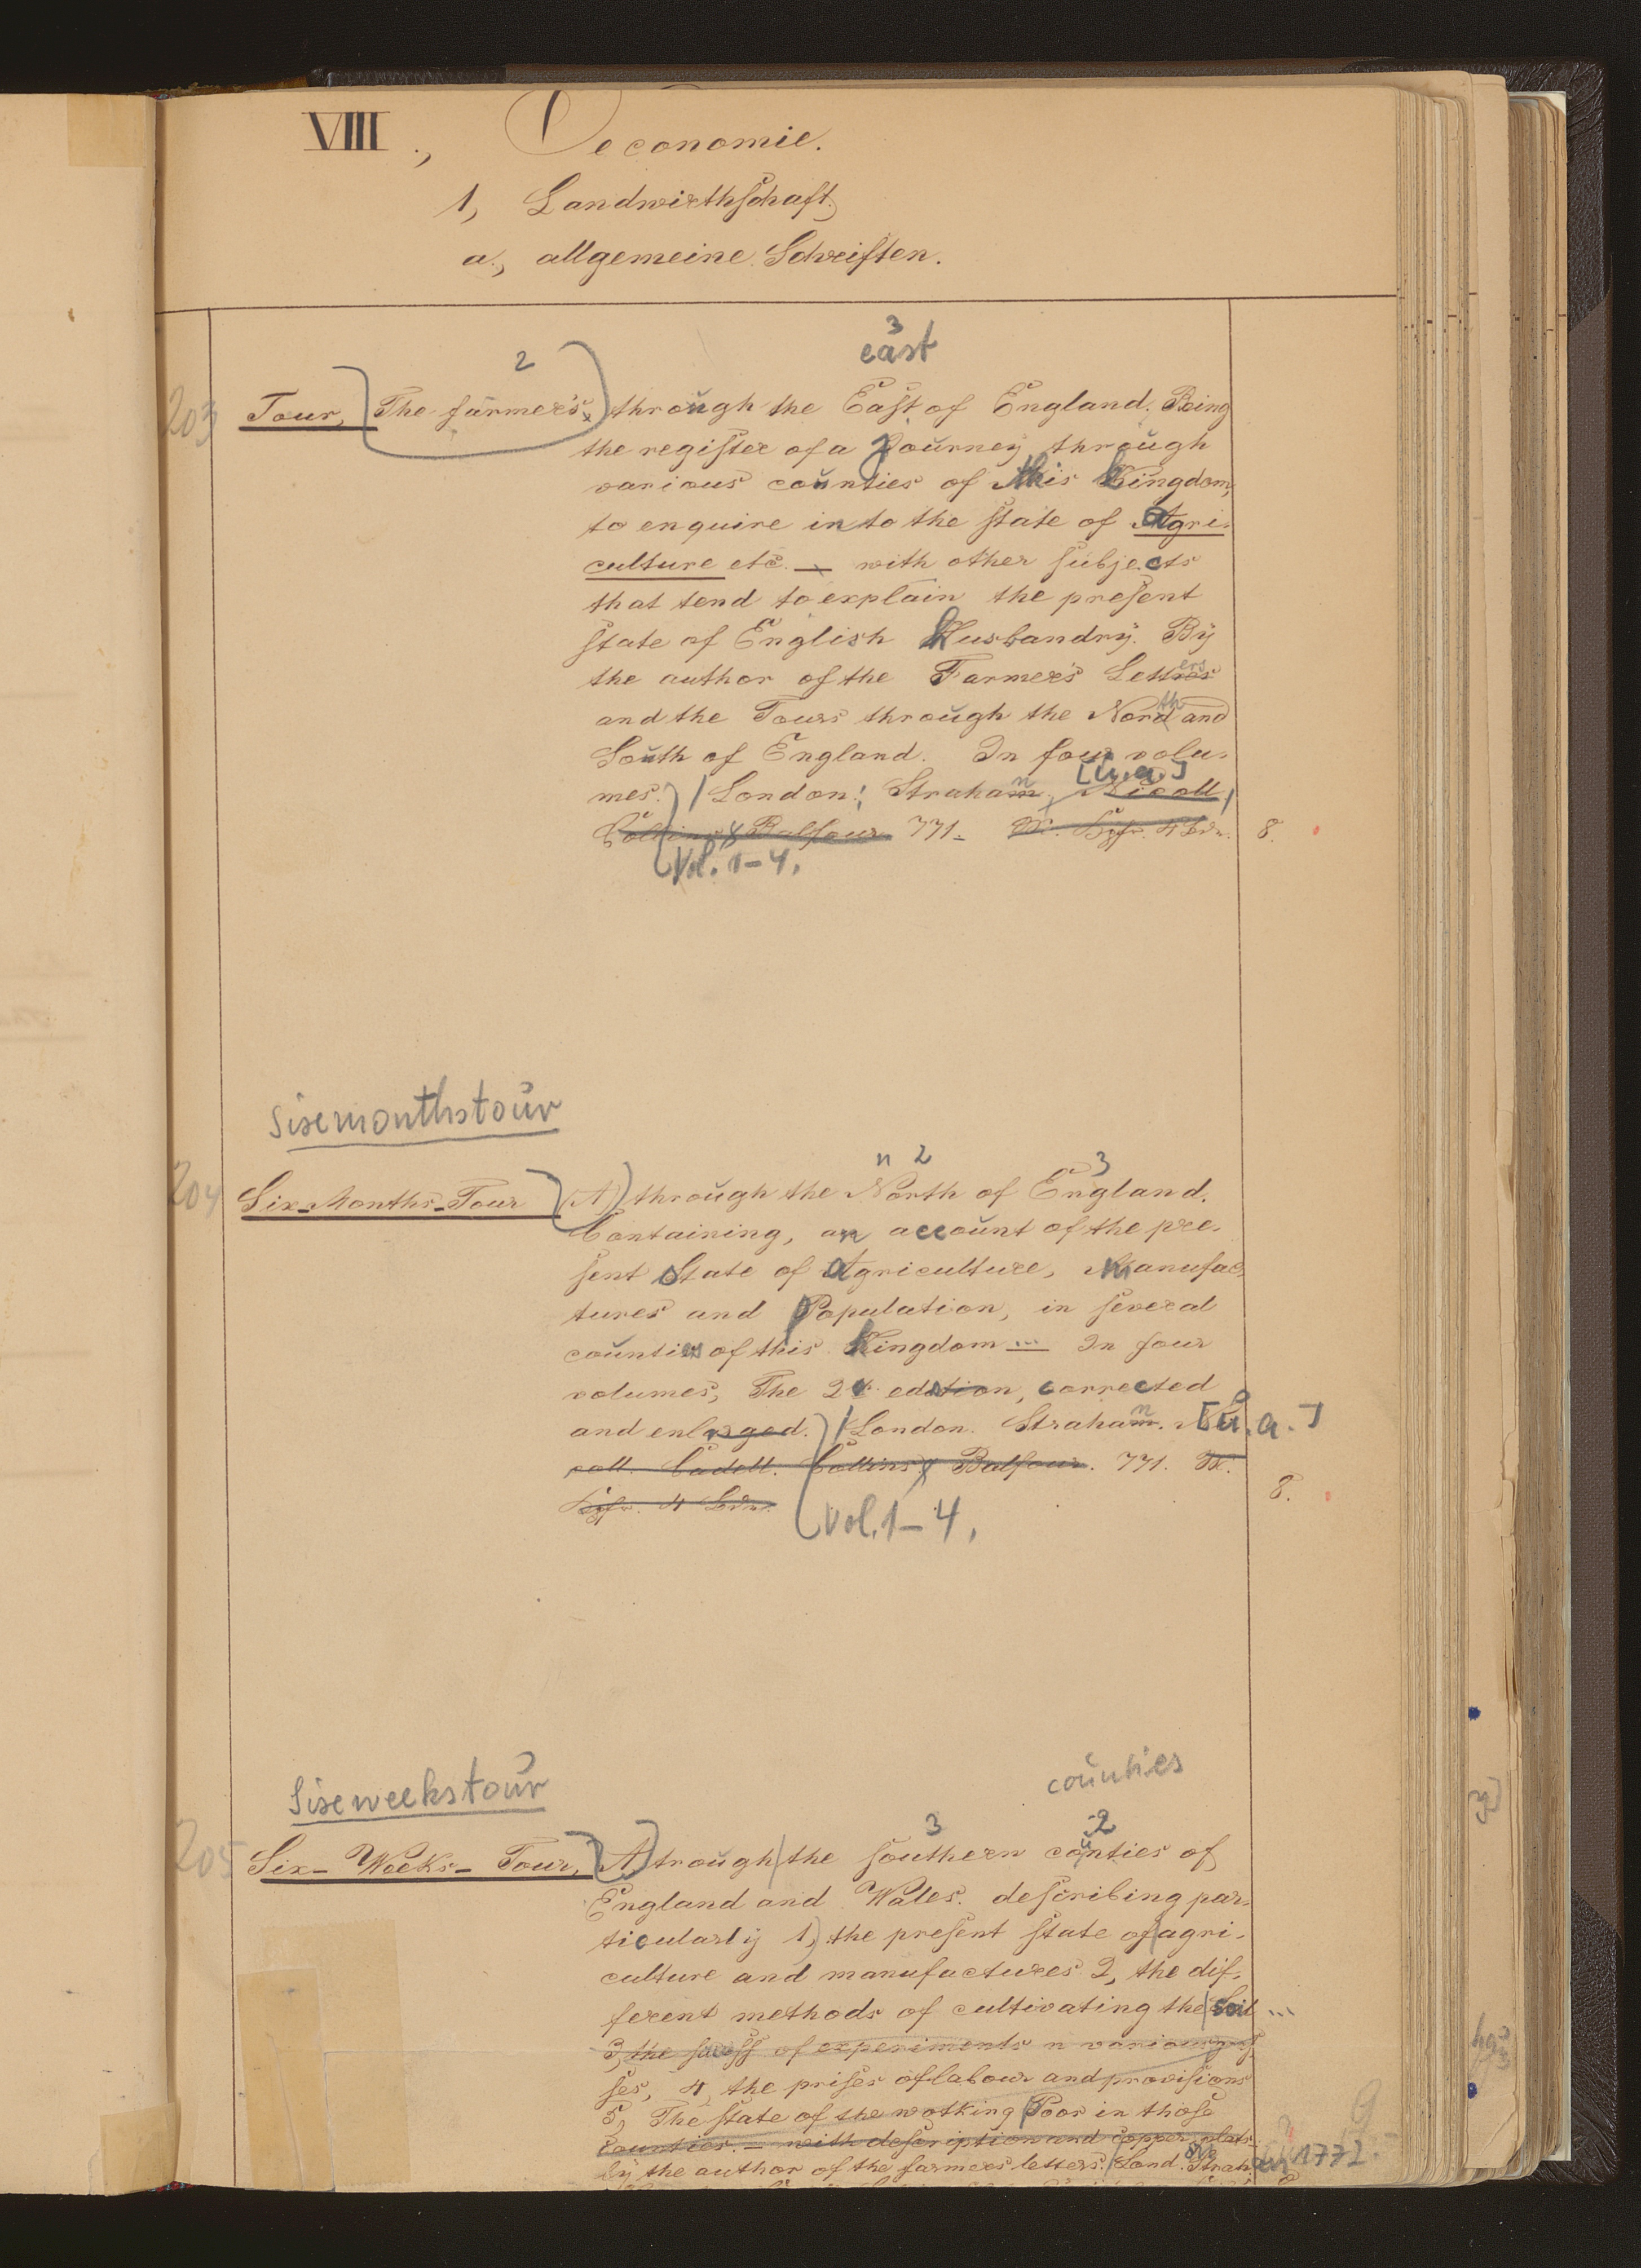 VIII., Oeconomie.
1, Landwirthschaft.
a., allgemeine Schriften.
3
east
2
203 Tour, The farmer's through the East of England. Being
the register of a journey through
various counties of this kingdom,
to enquire into the state of agri-
culture etc. — with other subjects
that tend to explain the present
state of English husbandry. By
the author of the Farmer's Letters
and the Tours through the North and
South of England. In four volu-
[u.a.]
mes.) / London: Strahan, Nicoll,
Collins & Balfour 771. Hfzfr. 4 Bde. 8.
Vol. 1-4.
Sixemonthstour
n 2 3
204 Six-Months-Tour (A) through the North of England.
Containing, an account of the pre-
sent State of Agriculture, Manufac-
tures and Population, in several
counties of this Kingdom ... In four
volumes, The 2d edition, corrected
and enlarged.) / London. Strahan. [u.a.]
coll. Cadell. Collins & Balfour. 771.
4 Bde. 8.
Vol. 1-4.
Sixeweekstour
counties
3 2
205 Six-Weeks-Tour, (A) trough the southern counties of
England and Wales. describing par-
ticularly 1, the present state of agri-
culture and manufactures 2, the dif-
ferent methods of cultivating the soil ...
3, the success of experiments n various
ses, 4, the prises of labour and provisions
5, The state of the wotking Poor in those
counties. — with description and copper plats
by the author of the farmers letters. Lond. Strah 1772.